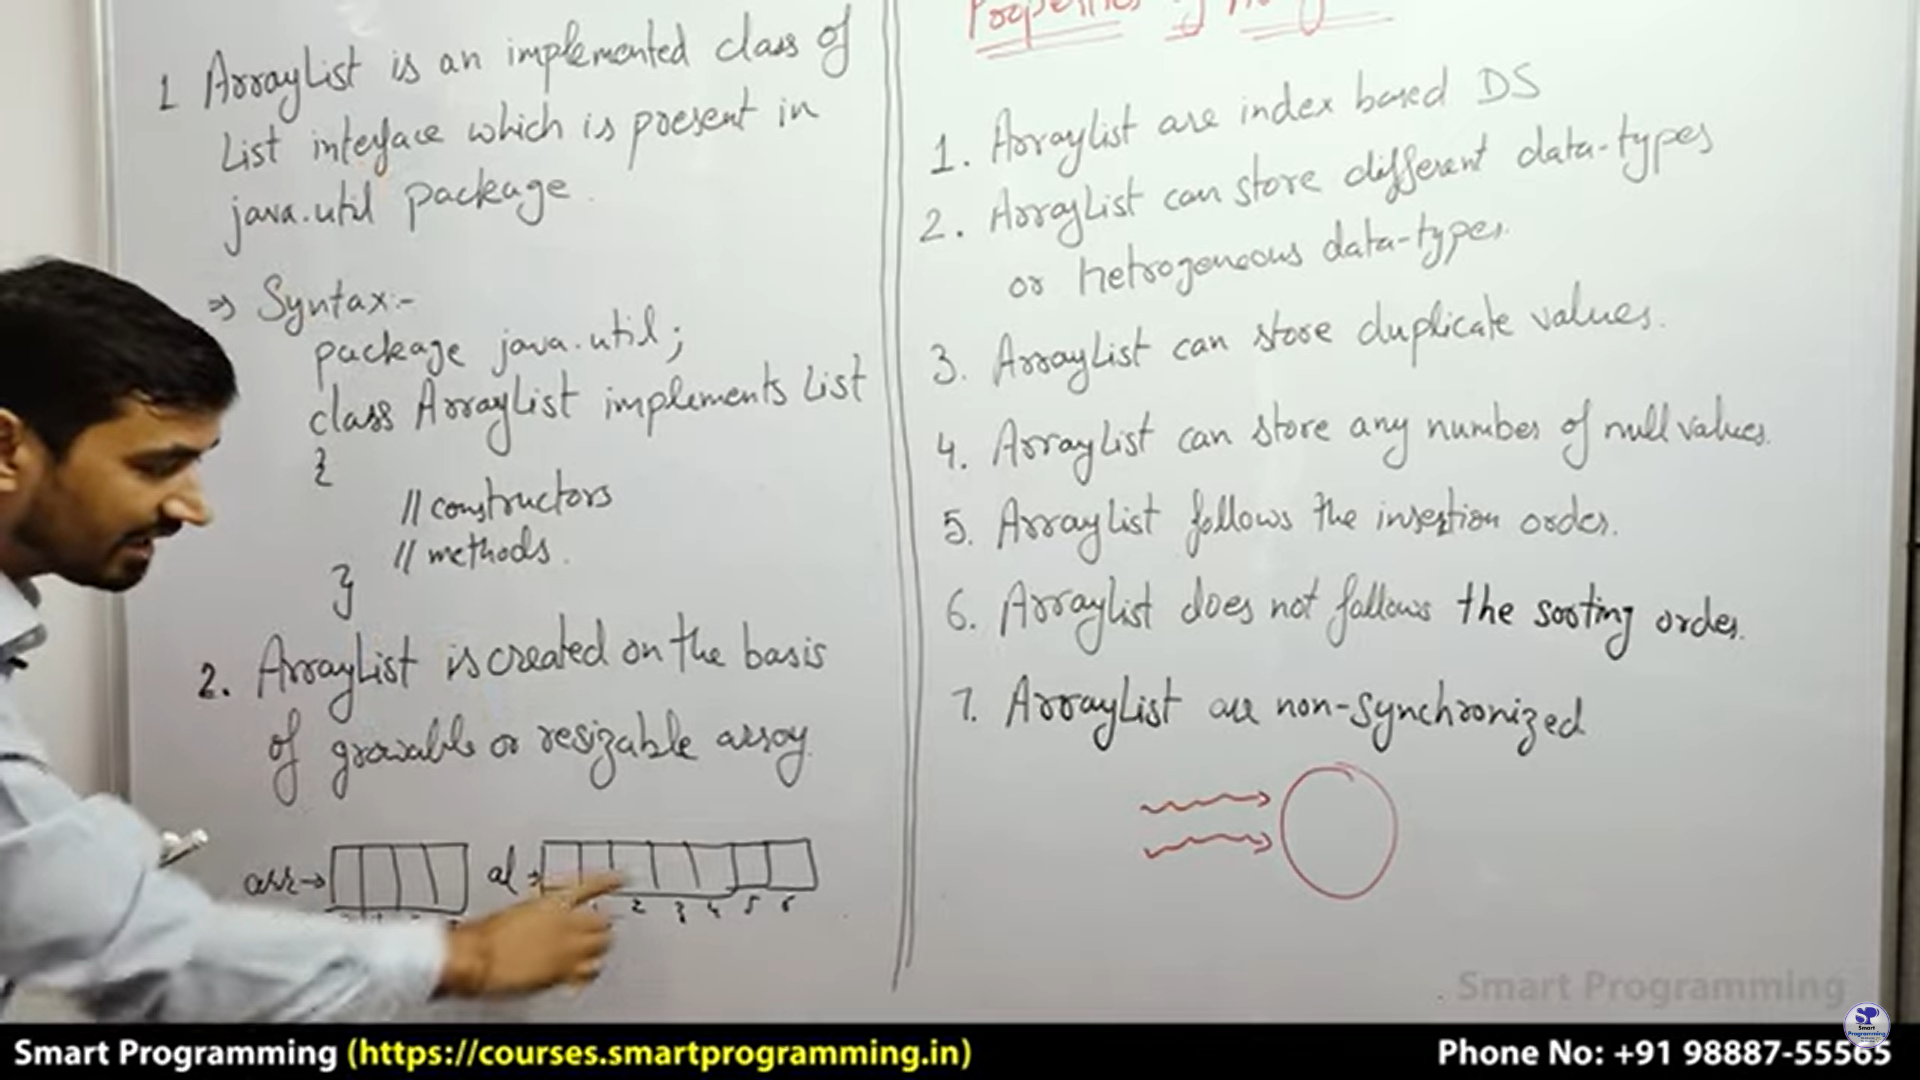 1 ArrayList is an implemented class of
List interface which is present in
java.util package.
⇒ Syntax:-
package java.util;
class ArrayList implements List
{
// constructors
// methods.
}
2. ArrayList is created on the basis
of growable or resizable array.
arr→
al→
2 3 4 5 6
Properties of
1. ArrayList are index based DS
2. ArrayList can store different data-types
or hetrogeneous data-types.
3. ArrayList can store duplicate values.
4. ArrayList can store any number of null values.
5. ArrayList follows the insertion order.
6. ArrayList does not follows the sorting order.
7. ArrayList are non-synchronized
Smart Programming
SP
Smart
Programming
Smart Programming (https://courses.smartprogramming.in)
Phone No: +91 98887-55565